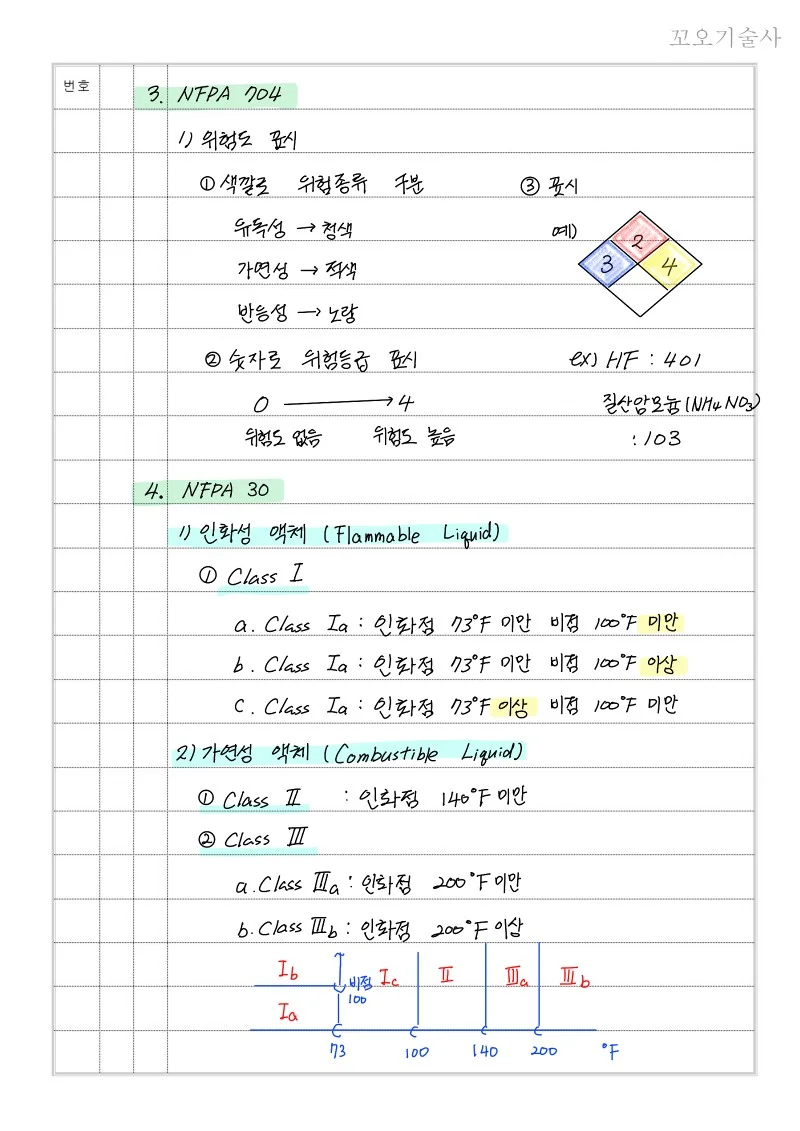 꼬오기술사
번호
3. NFPA 704
1) 위험도 표시
① 색깔로 위험종류 구분
유독성 → 청색
가연성 → 적색
반응성 → 노랑
② 숫자로 위험등급 표시
0 → 4
위험도 없음 위험도 높음
③ 표시
예)
2
3 4
ex) HF : 401
질산암모늄(NH4NO3)
: 103
4. NFPA 30
1) 인화성 액체 (Flammable Liquid)
① Class I
a. Class Ia : 인화점 73°F 미만 비점 100°F 미만
b. Class Ia : 인화점 73°F 미만 비점 100°F 이상
c. Class Ia : 인화점 73°F 이상 비점 100°F 미만
2) 가연성 액체 (Combustible Liquid)
① Class II : 인화점 140°F 미만
② Class III
a. Class IIIa : 인화점 200°F 미만
b. Class IIIb : 인화점 200°F 이상
Ib 비점 100 Ic II IIIa IIIb
Ia
73 100 140 200 °F